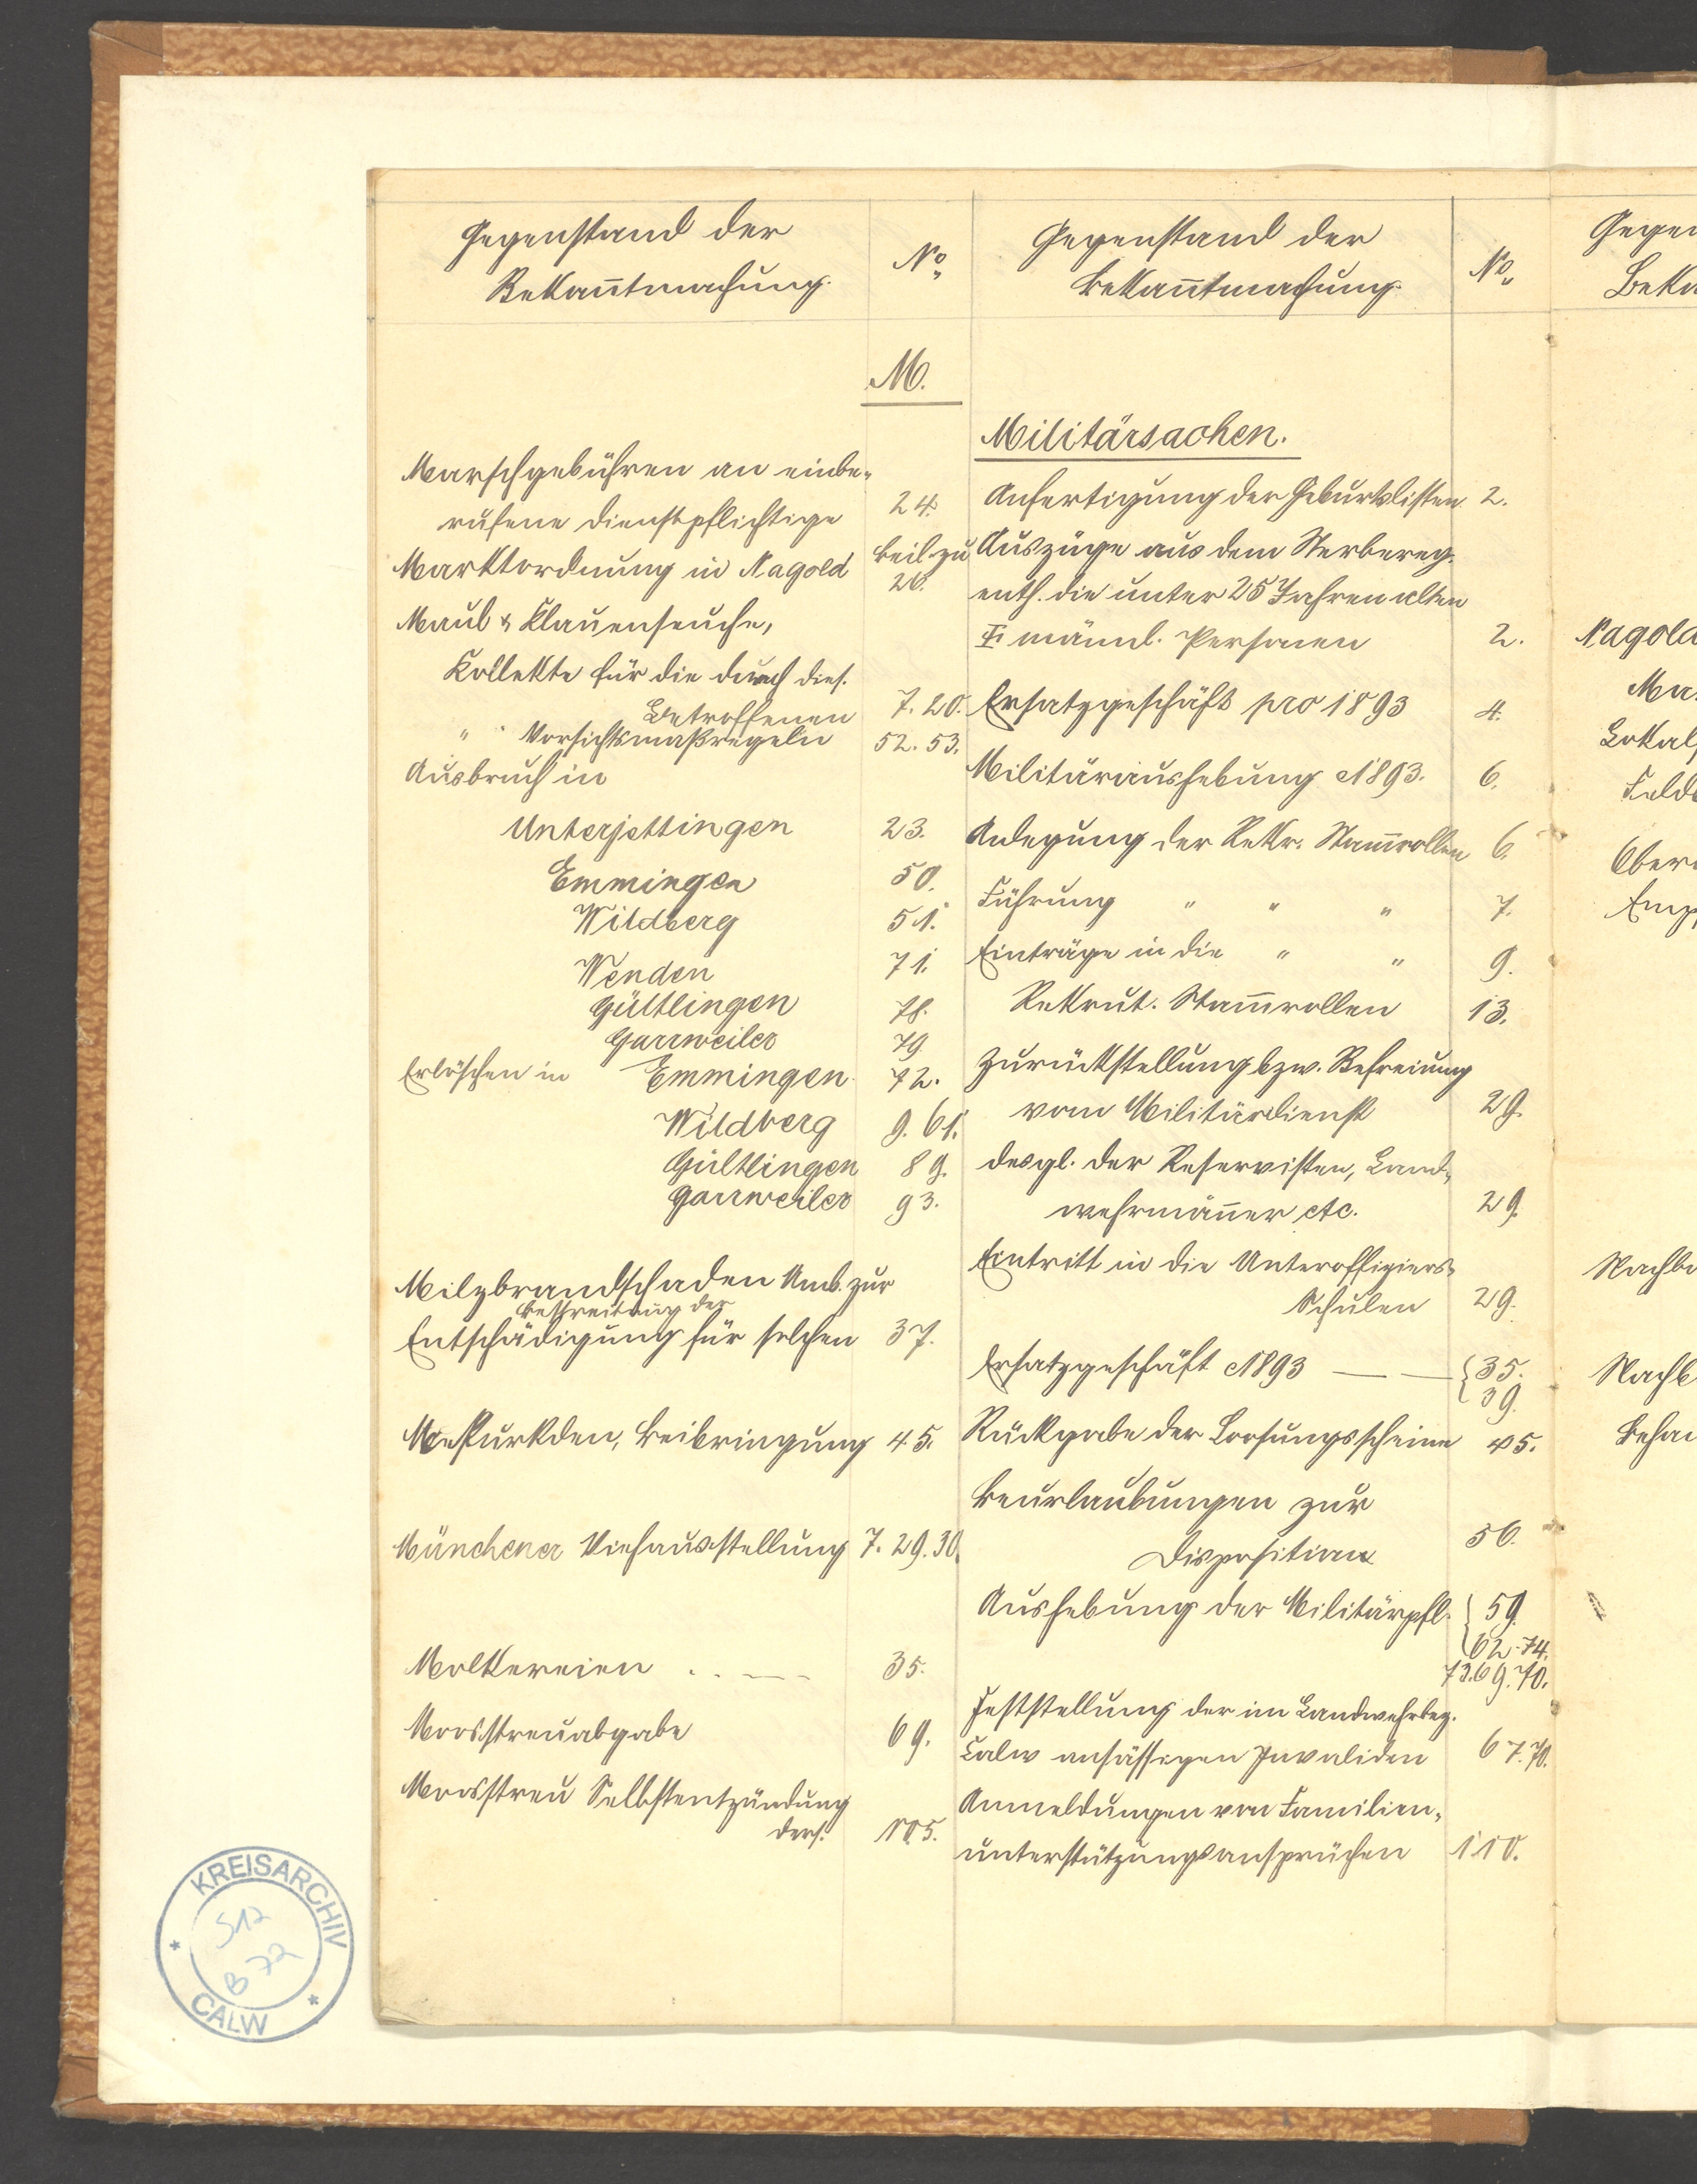 Gegenstand der
Bekanntmachung.
No
M.
Marschgebühren an einbe-
rufene Dienstpflichtige 24.
Marktordnung in Nagold Beil. zu 26.
Maul & Klauenseuche,
Kollekte für die durch dies.
Betroffenen 7. 20.
" Vorsichtsmaßregeln 52. 53.
Ausbruch in
Unterjettingen 23.
Emmingen 50.
Wildberg 51.
Wenden 71.
Gültlingen 78.
Garrweiler 79.
Erlöschen in Emmingen 72.
Wildberg 9. 61.
Gültlingen 89.
Garrweiler 93.
Milzbrandschaden Uml. zur
Bestreitung der
Entschädigung für solchen 37.
Meßurkden, Beibringung 45.
Münchener Viehausstellung 7. 29. 30.
Molkereien 35.
Moosstreuabgabe 69.
Moosstreu Selbstentzündung
ders. 105.
Gegenstand der
Bekanntmachung.
No
Militärsachen.
Anfertigung der Geburtslisten 2.
Auszüge aus dem Sterbereg.
enth. die unter 25 Jahren alten
männl. Personen 2.
Ersatzgeschäft pro 1893 4.
Militäraushebung 1893. 6.
Anlegung der Rekr. Stammrollen 6.
Führung " " " 7.
Einträge in die " " 9.
Rekrut. Stammrollen 13.
Zurückstellung bzw. Befreiung
vom Militärdienst 29.
desgl. der Reservisten, Land-
wehrmänner etc. 29.
Eintritt in die Unteroffiziers-
Schulen 29.
Ersatzgeschäft 1893 — — { 35.
39.
Rückgabe der Loosungsscheine 45.
Beurlaubungen zur
Disposition 56.
Aushebung der Militärpfl. { 59.
62. 74.
73. 69. 70.
Feststellung der im Landwehrbez.
Calw ansässigen Invaliden 67. 70.
Anmeldungen von Familien-
unterstützungsansprüchen 110.
Gegen
Beka
Nagold
Ma
Lokal
Feld
Ober
Emp
Nachb
Nachb
Beha
KREISARCHIV
S12
B 72
CALW